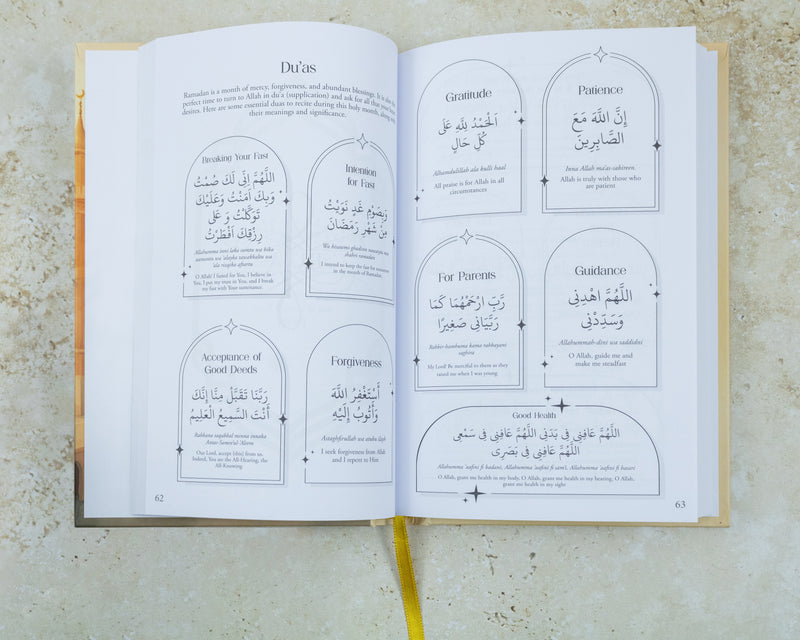 Du'as
Ramadan is a month of mercy, forgiveness, and abundant blessings. It is also the
perfect time to turn to Allah in du'a (supplication) and ask for all that your heart
desires. Here are some essential duas to recite during this holy month, along with
their meanings and significance.
Breaking Your Fast
اللَّهُمَّ اِنِّى لَكَ صُمْتُ
وَبِكَ اٰمَنْتُ وَعَلَيْكَ
تَوَكَّلْتُ وَ عَلٰى
رِزْقِكَ اَفْطَرْتُ
Allahumma inni laka sumtu wa bika
aamantu wa 'alayka tawakkaltu wa
'ala rizqika aftartu
O Allah! I fasted for You, I believe in
You, I put my trust in You, and I break
my fast with Your sustenance.
Intention
for Fast
وَبِصَوْمِ غَدٍ نَوَيْتُ
مِنْ شَهْرِ رَمَضَانَ
Wa bisawmi ghadinn nawaytu min
shahri ramadan
I intend to keep the fast for tomorrow
in the month of Ramadan.
Acceptance of
Good Deeds
رَبَّنَا تَقَبَّلْ مِنَّا إِنَّكَ
أَنْتَ السَّمِيعُ الْعَلِيمُ
Rabbana taqabbal menna innaka
Antas-Samee'ul-'Aleem
Our Lord, accept [this] from us.
Indeed, You are the All-Hearing, the
All-Knowing
Forgiveness
أَسْتَغْفِرُ اللَّهَ
وَأَتُوبُ إِلَيْهِ
Astaghfirullah wa atubu ilayh
I seek forgiveness from Allah
and I repent to Him
62
Gratitude
اَلْحَمْدُ لِلَّهِ عَلَى
كُلِّ حَالٍ
Alhamdulillah ala kulli haal
All praise is for Allah in all
circumstances
Patience
إِنَّ اللَّهَ مَعَ
الصَّابِرِينَ
Inna Allah ma'as-sabireen.
Allah is truly with those who
are patient
For Parents
رَّبِّ ارْحَمْهُمَا كَمَا
رَبَّيَانِي صَغِيرًا
Rabbir-hamhuma kama rabbayani
saghira
My Lord! Be merciful to them as they
raised me when I was young
Guidance
اللَّهُمَّ اهْدِنِى
وَسَدِّدْنِى
Allahummah-dini wa saddidni
O Allah, guide me and
make me steadfast
Good Health
اللَّهُمَّ عَافِنِى فِى بَدَنِى اللَّهُمَّ عَافِنِى فِى سَمْعِى
اللَّهُمَّ عَافِنِى فِى بَصَرِى
Allahumma 'aafini fi badani, Allahumma 'aafini fi sam'i, Allahumma 'aafini fi basari
O Allah, grant me health in my body, O Allah, grant me health in my hearing, O Allah,
grant me health in my sight
63